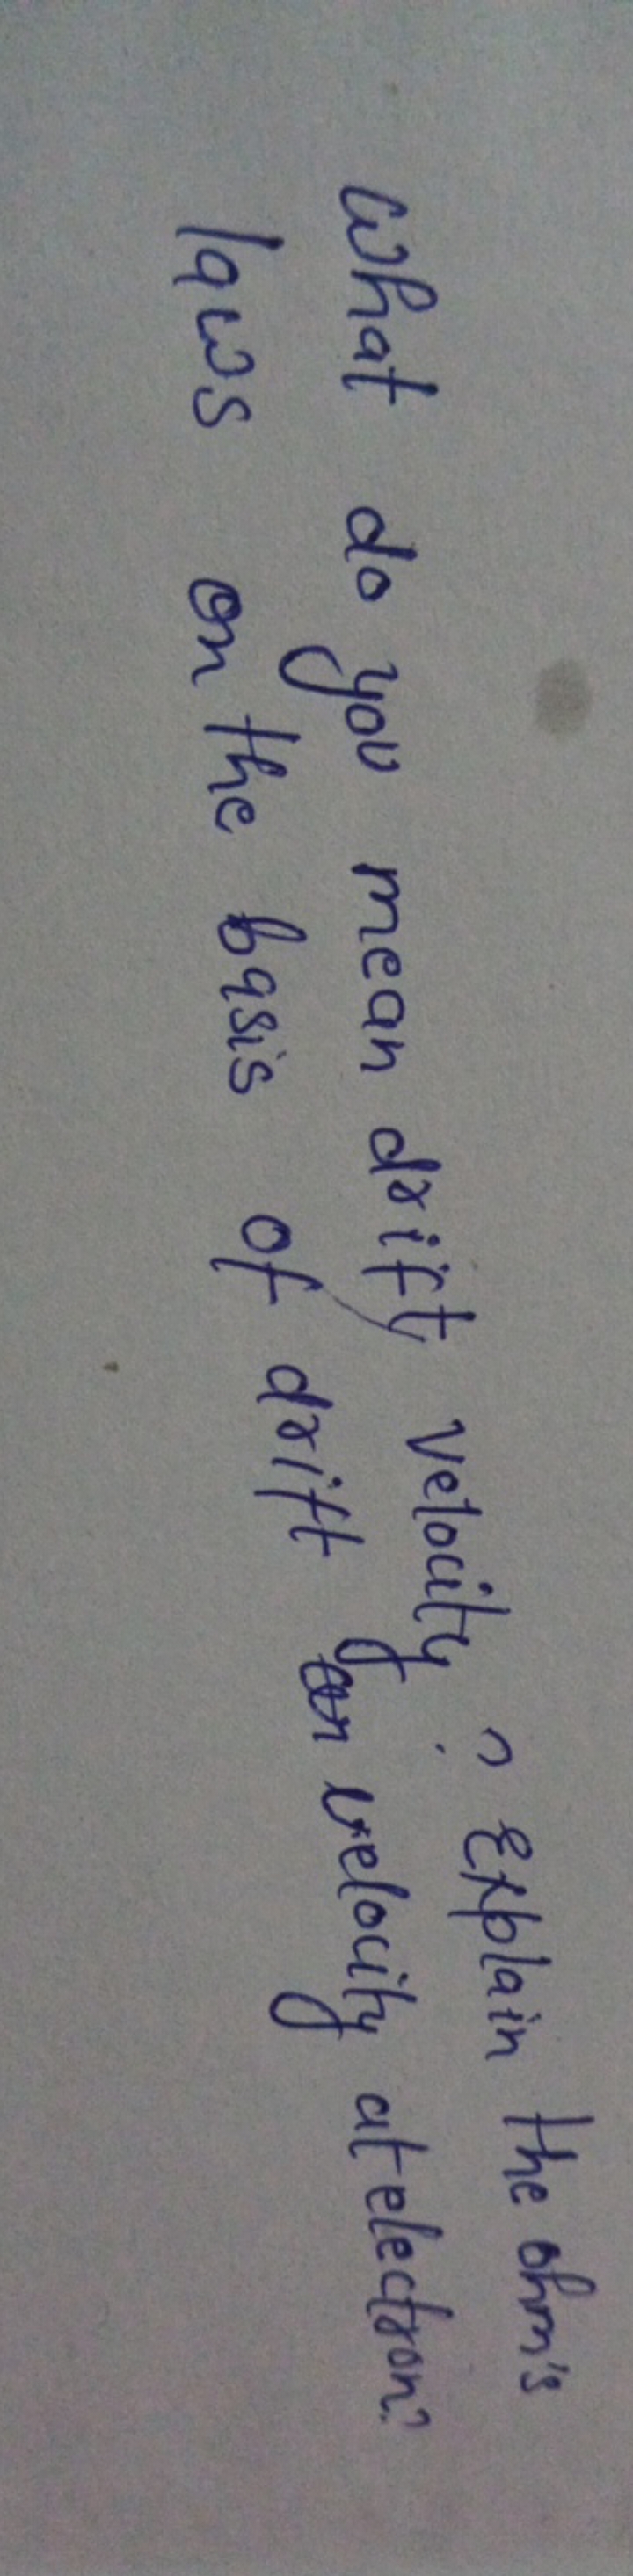 What do you mean drift velocity? Explain the ohm's
laws on the basis of drift velocity at electron?